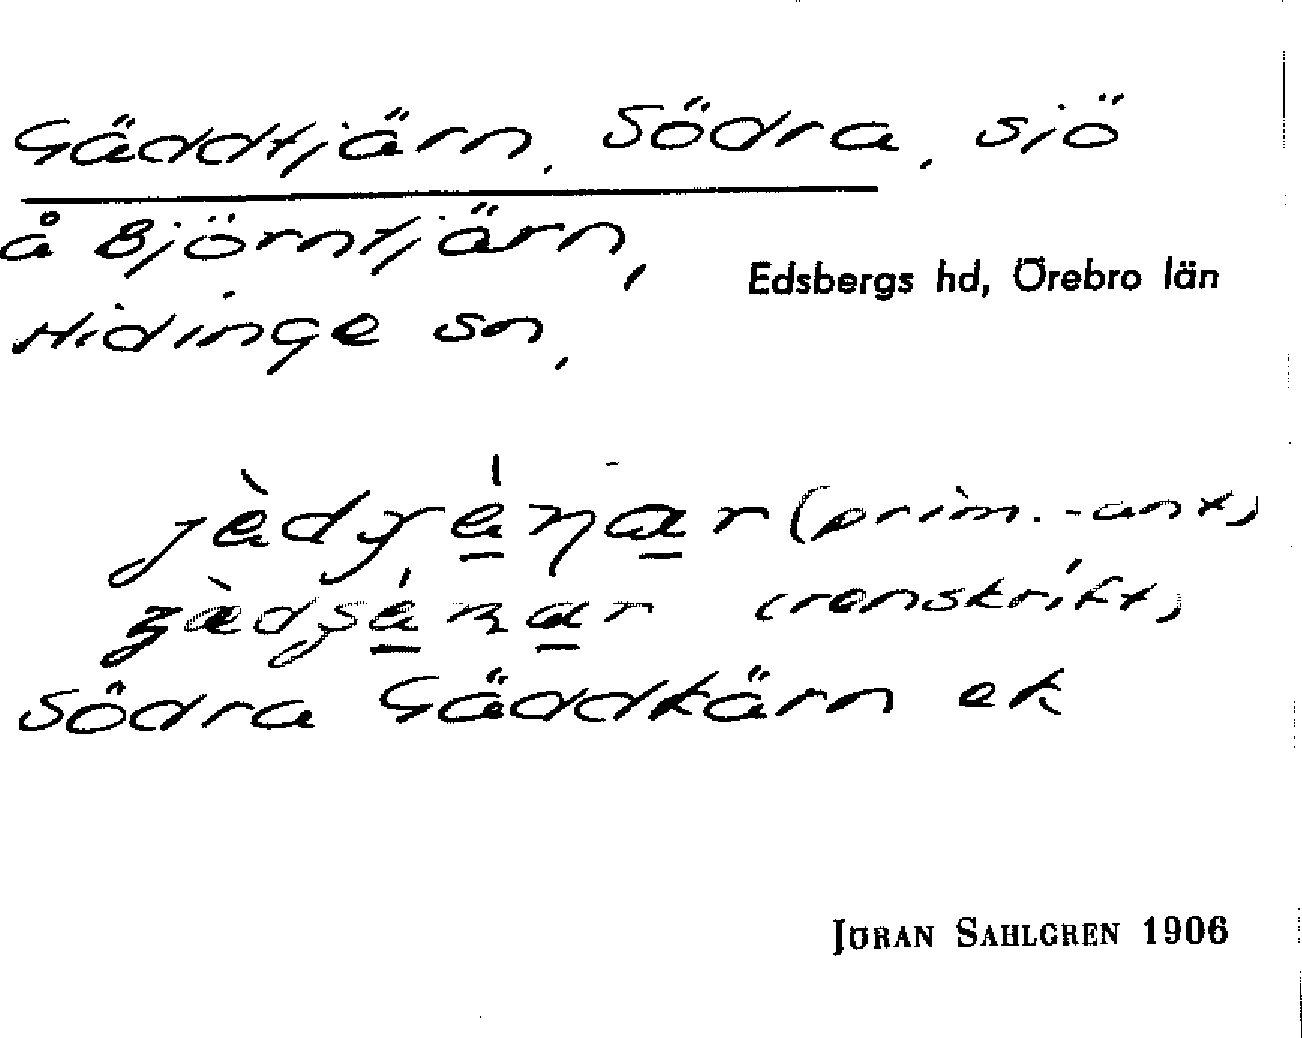 Gäddtjärn, Södra, sjö
å Björntjärn,
Edsbergs hd, Örebro län
Hidinge sn,
(prim.-ant)
(renskrift)
Södra Gäddkärn ek
JÖRAN SAHLGREN 1906